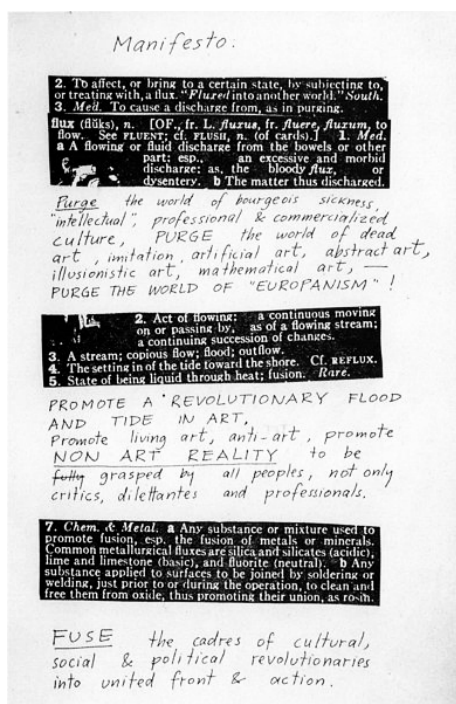 Manifesto.
2. To affect, or bring to a certain state, by subjecting to,
or treating with, a flux. "Fluxed into another world." South.
3. Med. To cause a discharge from, as in purging.
flux (flŭks), n. [OF., fr. L. fluxus, fr. fluere, fluxum, to
flow. See FLUENT; cf. FLUSH, n. (of cards).] 1. Med.
a A flowing or fluid discharge from the bowels or other
part: esp., an excessive and morbid
discharge: as, the bloody flux, or
dysentery. b The matter thus discharged.
Purge the world of bourgeois sickness,
"intellectual", professional & commercialized
culture, PURGE the world of dead
art, imitation, artificial art, abstract art,
illusionistic art, mathematical art, —
PURGE THE WORLD OF "EUROPANISM"!
2. Act of flowing: a continuous moving
on or passing by, as of a flowing stream;
a continuing succession of changes.
3. A stream; copious flow; flood; outflow.
4. The setting in of the tide toward the shore. Cf. REFLUX.
5. State of being liquid through heat; fusion. Rare.
PROMOTE A REVOLUTIONARY FLOOD
AND TIDE IN ART,
Promote living art, anti-art, promote
NON ART REALITY to be
fully grasped by all peoples, not only
critics, dilettantes and professionals.
7. Chem. & Metal. a Any substance or mixture used to
promote fusion, esp. the fusion of metals or minerals.
Common metallurgical fluxes are silica and silicates (acidic),
lime and limestone (basic), and fluorite (neutral). b Any
substance applied to surfaces to be joined by soldering or
welding, just prior to or during the operation, to clean and
free them from oxide, thus promoting their union, as rosin.
FUSE the cadres of cultural,
social & political revolutionaries
into united front & action.